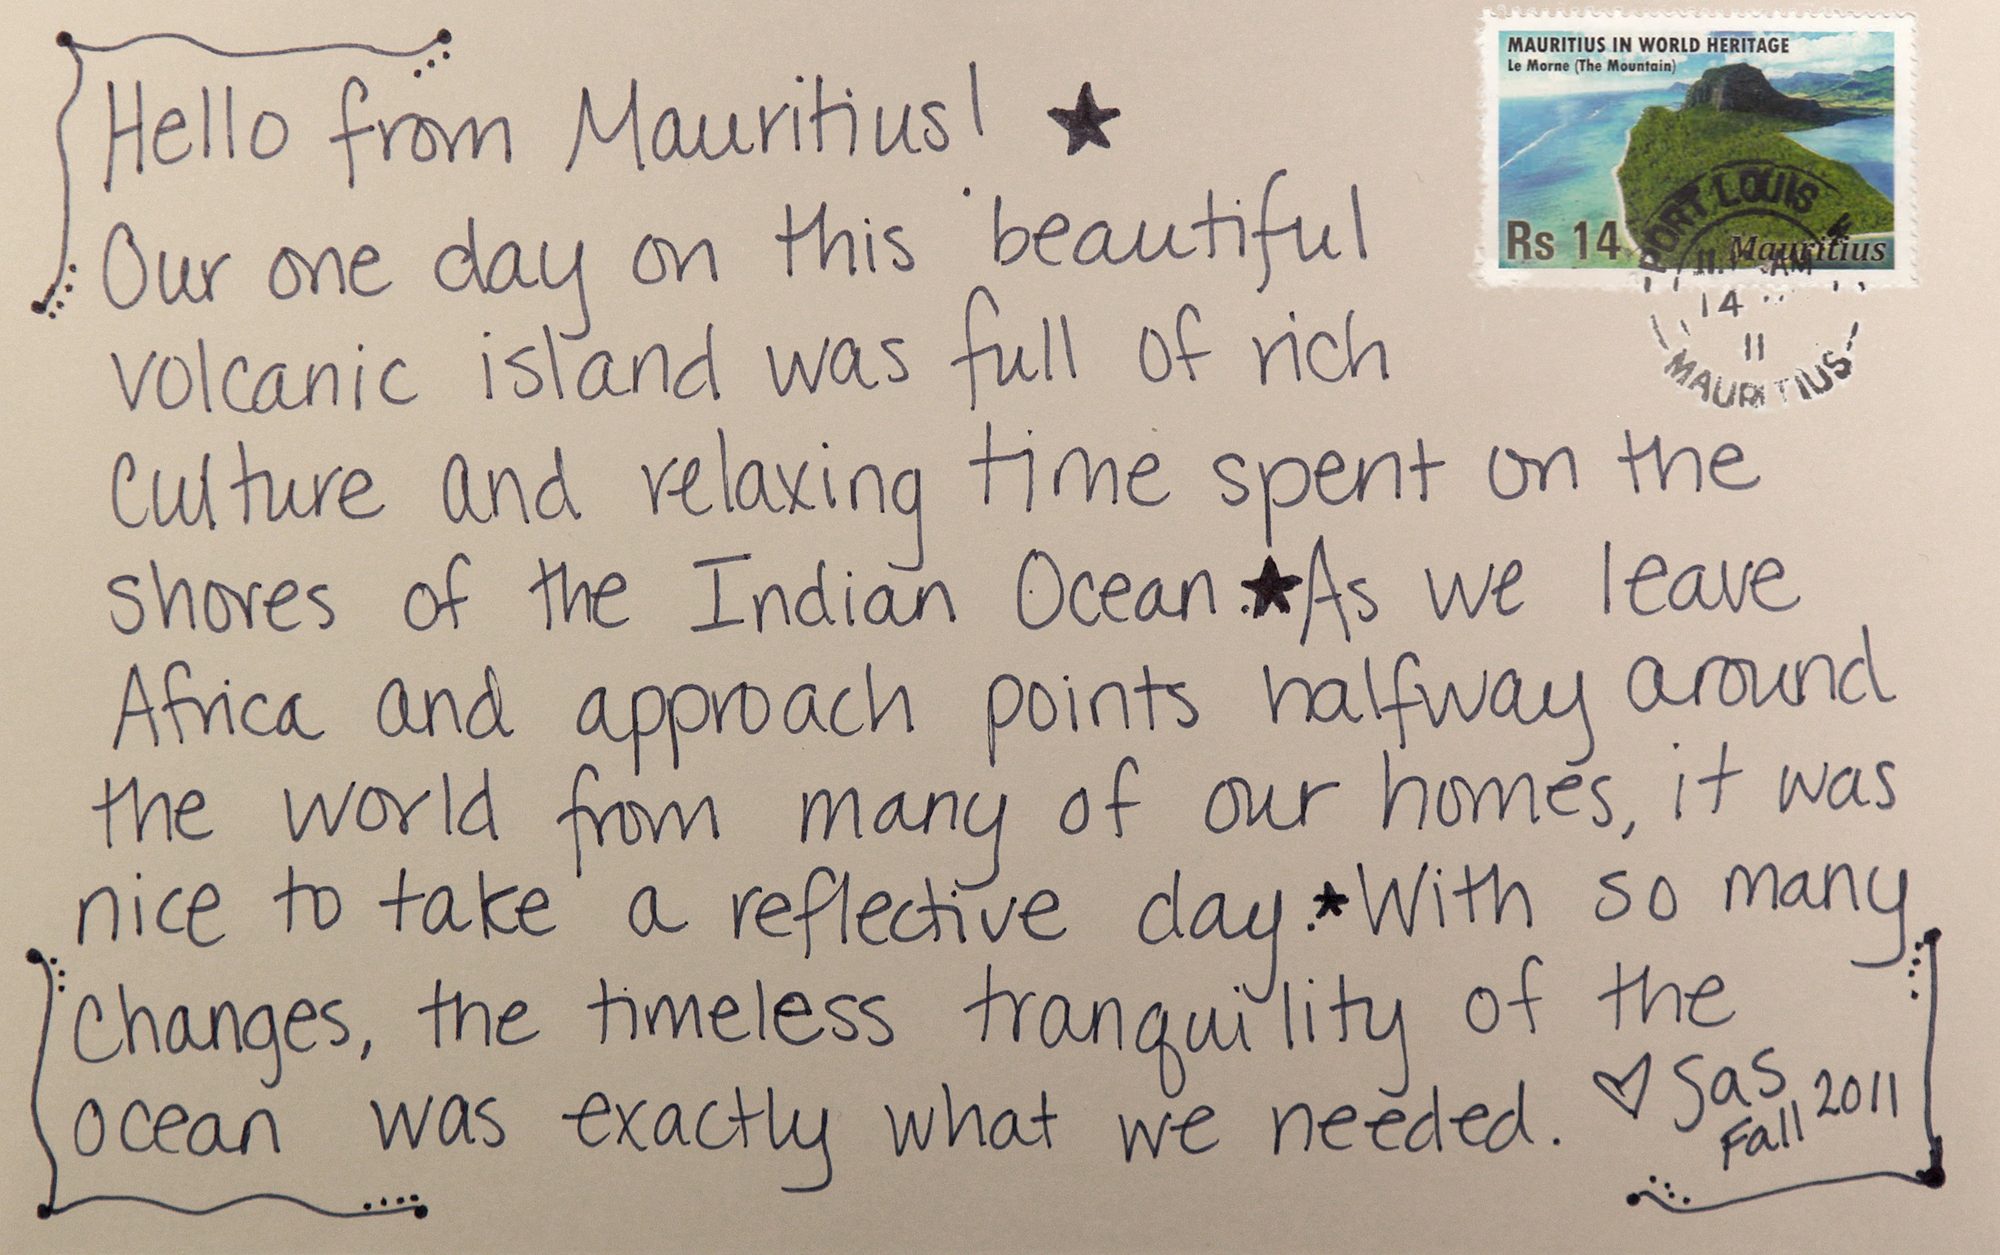 Hello from Mauritius!
Our one day on this beautiful
volcanic island was full of rich
culture and relaxing time spent on the
shores of the Indian Ocean. As we leave
Africa and approach points halfway around
the world from many of our homes, it was
nice to take a reflective day. With so many
changes, the timeless tranquility of the
ocean was exactly what we needed. ♡ SAS
Fall 2011
MAURITIUS IN WORLD HERITAGE
Le Morne (The Mountain)
Rs 14
Mauritius
PORT LOUIS
AM
14
11
MAURITIUS